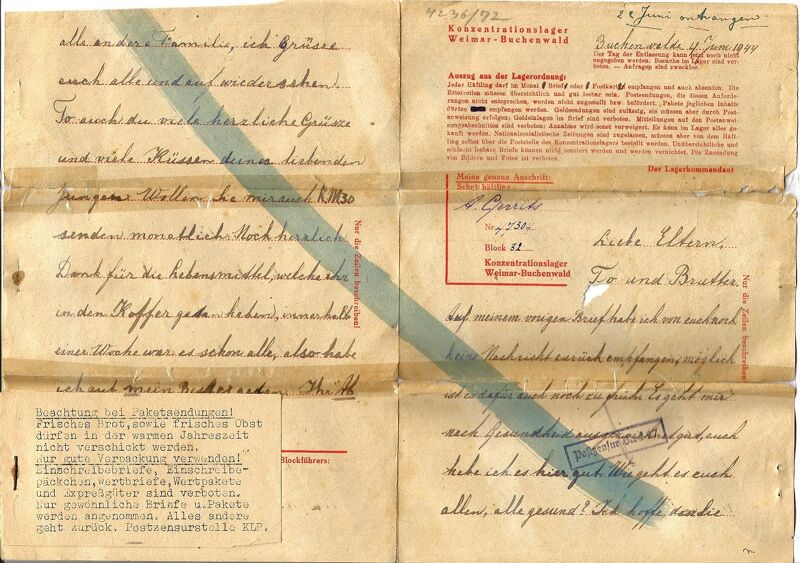 alle andere Familie, ich Grüsse
euch alle und auf wiedersehen.
To auch du viele herzliche Grüsze
und viele Küssen deines liebenden
jungen. Wollen Sie mir auch R.M.30
senden monatlich. Noch herzlich
Dank für die Lebensmittel, welche ihr
in den Koffer gedan haben, innerhalb
einer Woche war es schon alle, also habe
ich auf mein Bestes gedan. Ihr
Nur die Zeilen beschreiben!
Beachtung bei Paketsendungen!
Frisches Brot, sowie frisches Obst
dürfen in der warmen Jahreszeit
nicht verschickt werden.
nur gute Verpackung verwenden!
Einschreibebriefe, Einschreibe-
päckchen, wertbriefe, Wertpakete
und Expreßgüter sind verboten.
Nur gewöhnliche Briefe u. Pakete
werden angenommen. Alles andere
geht zurück. Postzensurstelle KLB.
Blockführers:
4236/72
22 Juni ontvangen
Konzentrationslager
Weimar-Buchenwald
Buchenwalde 4 Juni 1944
Der Tag der Entlassung kann jetzt noch nicht
angegeben werden. Besuche im Lager sind ver-
boten. — Anfragen sind zwecklos.
Auszug aus der Lagerordnung:
Jeder Häftling darf im Monat Brief oder Postkarte empfangen und auch absenden. Die
Briefzeilen müssen übersichtlich und gut lesbar sein. Postsendungen, die diesen Anforde-
rungen nicht entsprechen, werden nicht zugestellt bzw. befördert. Pakete jeglichen Inhalts
dürfen empfangen werden. Geldsendungen sind zulässig, sie müssen aber durch Post-
anweisung erfolgen; Geldeinlagen im Brief sind verboten. Mitteilungen auf den Postanwei-
sungsabschnitten sind verboten; Annahme wird sonst verweigert. Es kann im Lager alles ge-
kauft werden. Nationalsozialistische Zeitungen sind zugelassen, müssen aber von dem Häft-
ling selbst über die Poststelle des Konzentrationslagers bestellt werden. Unübersichtliche und
schlecht lesbare Briefe können nicht zensiert werden und werden vernichtet. Die Zusendung
von Bildern und Fotos ist verboten.
Der Lagerkommandant
Meine genaue Anschrift:
Schutzhäftling
A. Gerrits
Nr.
Block 52
Konzentrationslager
Weimar-Buchenwald
Liebe Eltern.
To und Brutter.
Auf meinem vorigen Brief habe ich von euch noch
keine Nachricht zurück empfangen, möglich
ist es dafür auch noch zu früh. Es geht mir
nach Gesundheid ausgezeichnet gut, auch
habe ich es hier gut. Wie geht es euch
allen, alle gesund? Ich hoffe, das die
Nur die Zeilen beschreiben!
Postzensur